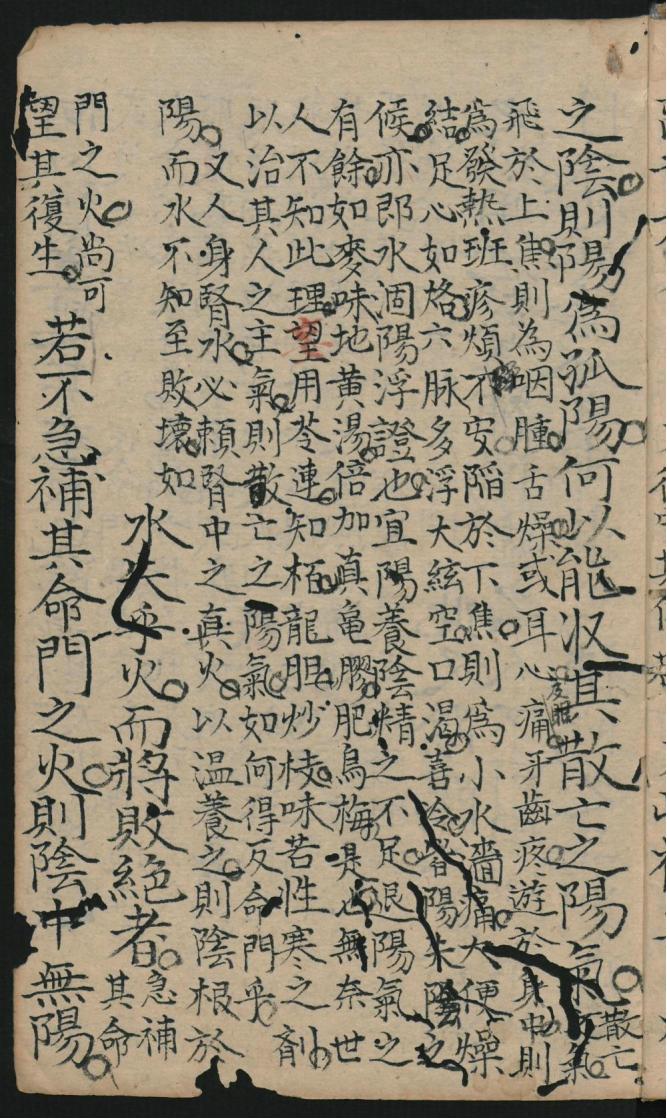 之陰則陽爲孤陽何以能収其散亡之陽氣散亡之氣
飛於上焦則為咽腫舌燥或耳心痛牙齒疼遊於身中則
爲發熱班疹煩不安陷於下焦則爲小水濇痛大便燥
結足心如烙六脉多浮大絃空口渴喜冷皆陽失陰之
候亦即水涸陽浮證也宜陽養陰精之不足退陽氣之
有餘如麥味地黄湯倍加真龜膠肥烏梅是也無奈世
人不知此理妄用芩連知栢龍胆炒梔味苦性寒之劑
以治其人之主氣則散亡之陽氣如何得反命門乎
又人身腎水必賴腎中之真火以温養之則陰根於
陽而水不知至敗壞如
水失乎火而將敗絶者急補其命
門之火尚可望其復生
若不急補其命門之火則陰中無陽